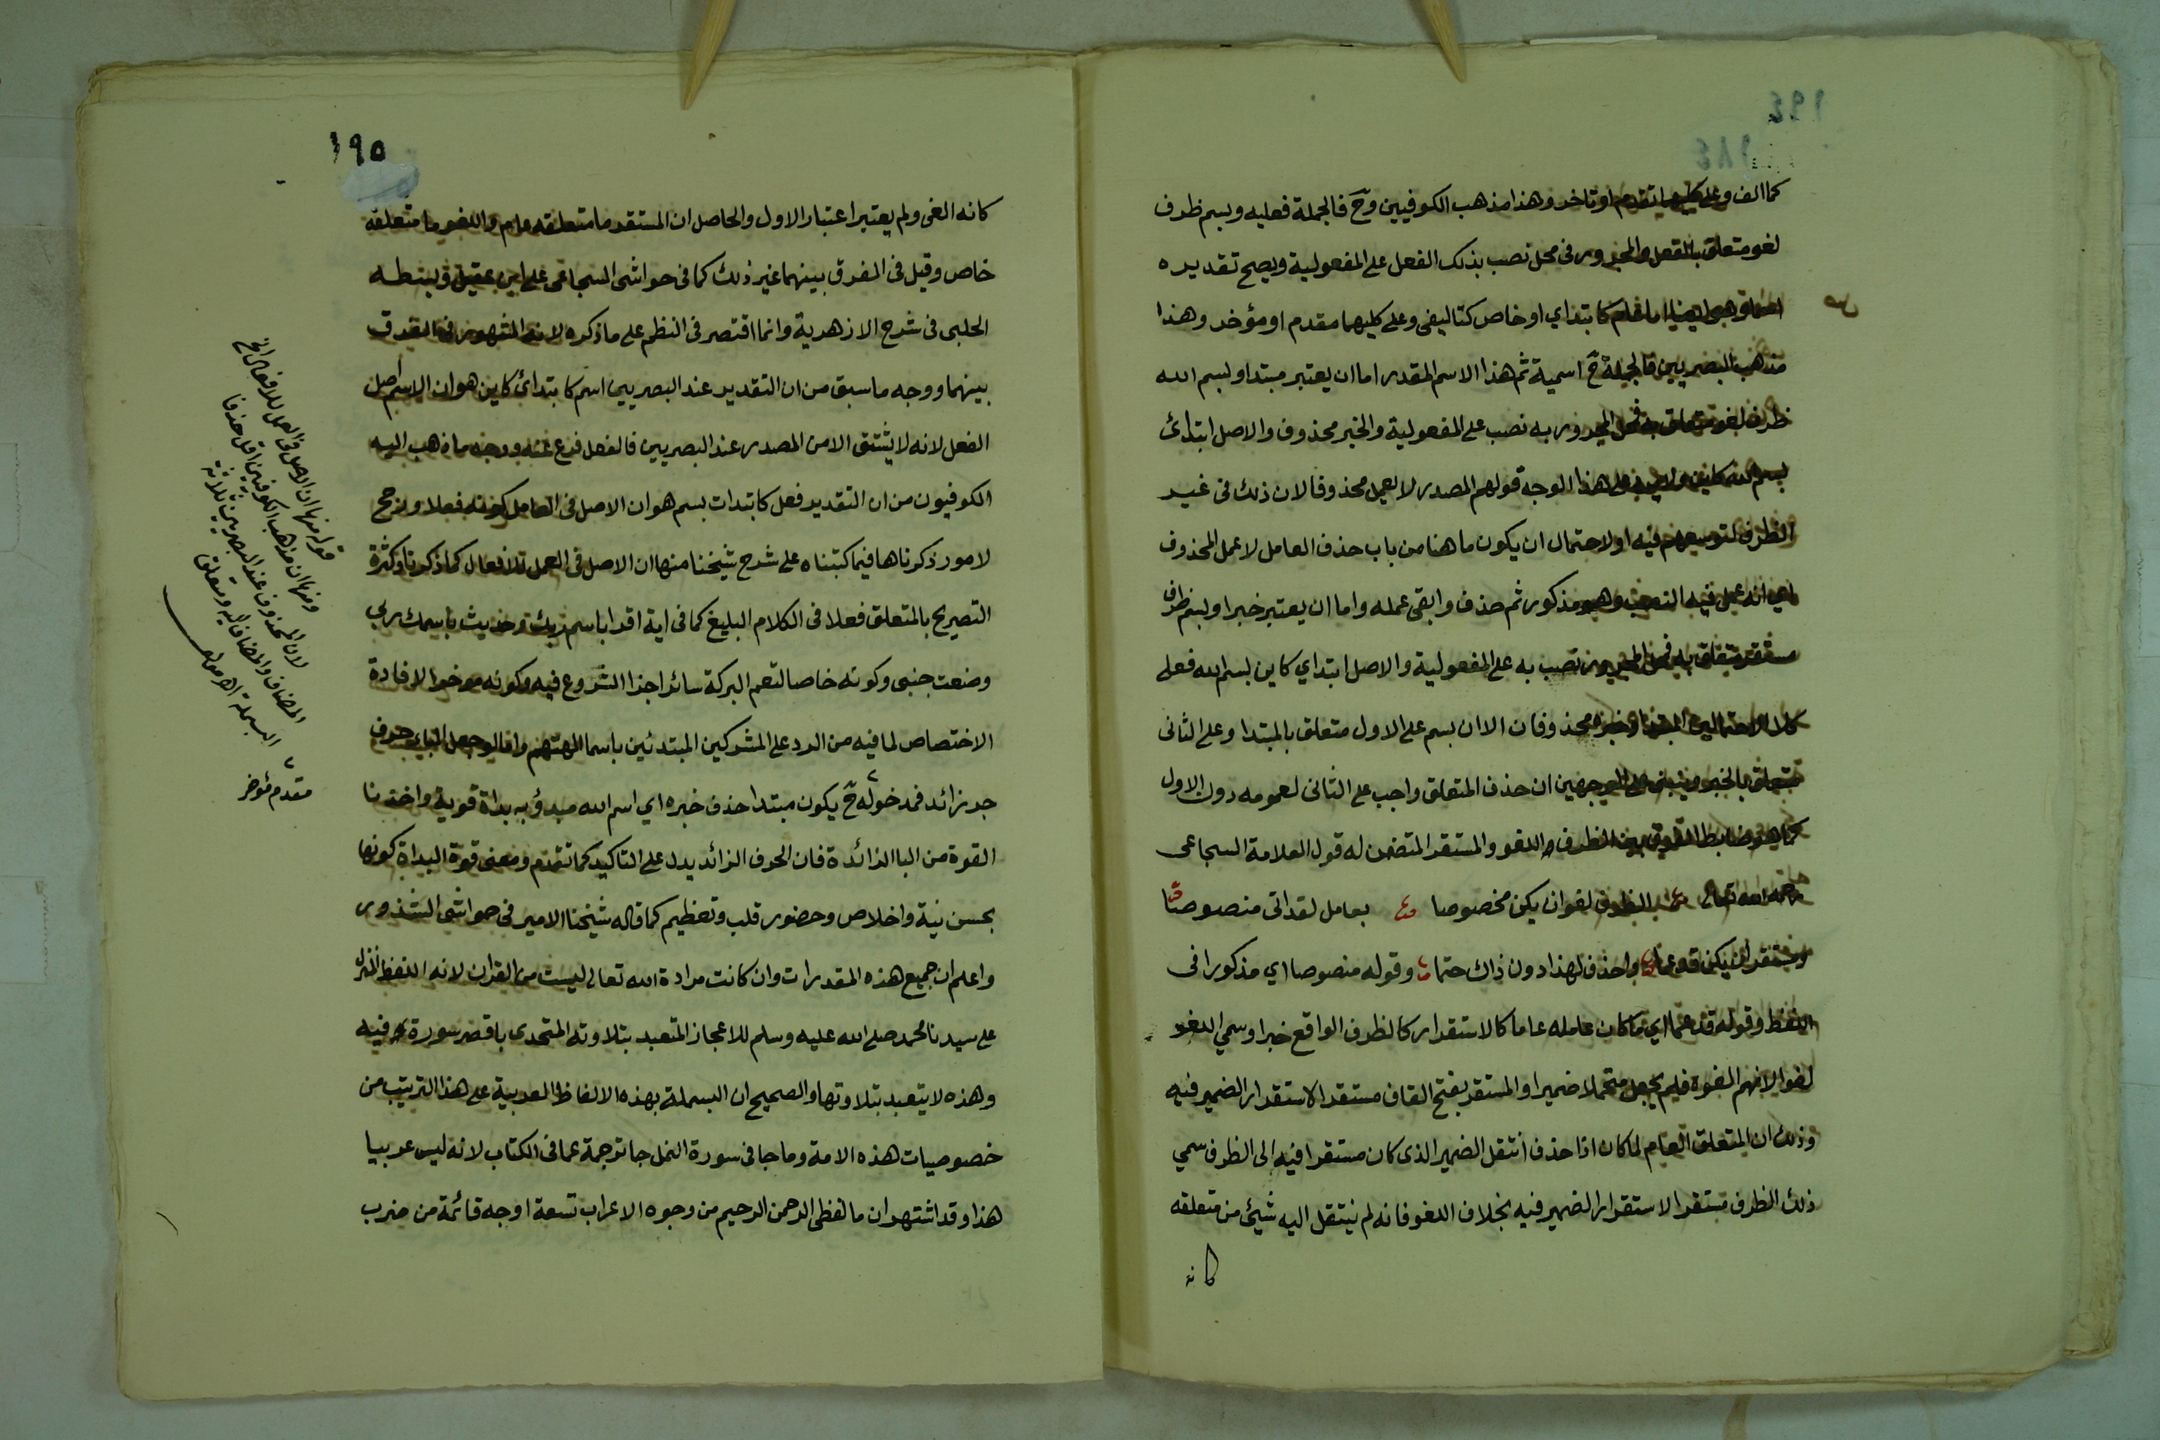 كاالف وعلى كليهما تقدم او تاخر وهذا مذهب الكوفيين وح فالجملة فعليه وبسم ظرف
لغو متعلق بالفعل والمجرور فى محل نصب بذلك الفعل على المفعولية ويصح تقديره
اما عام كابتداي او خاص كتاليفى وعلى كليهما مقدم او مؤخر وهذا
مذهب البصريين فالجملة ح اسمية ثم هذا الاسم المقدر اما ان يعتبر مبتدا وبسم الله
ظرف لغو متعلق به فمحل المجرور به نصب على المفعولية والخبر محذوف والاصل ابتدائ
بسم الله كاين هذا الوجه قولهم المصدر لا يعمل محذوفا لان ذلك فى غير
الظرف لتوسعهم فيه او لاحتمال ان يكون ما هنا من باب حذف العامل لا عمل المحذوف
اي انه عمل فيه النصب وهو مذكور ثم حذف وابقى عمله واما ان يعتبر خبرا وبسم ظرف
مستقر متعلق به فمحل المجرور نصب به على المفعولية والاصل ابتداي كاين بسم الله فعلى
كلا الاحتمالين المبتدا وخبره محذوفان الا ان بسم على الاول متعلق بالمبتدا وعلى الثانى
متعلق بالخبر وينبنى على الوجهين ان حذف المتعلق واجب على الثانى لعمومه دون الاول
كما هو ضابط الفرق بين الظرف اللغو والمستقر المتضمن له قول العلامة السجاعى
رحمه الله تعالى الظرف لغو ان يكن مخصوصا بعامل لقد اتى منصوصا
ومستقر ان يكن قد عما واحذف لهذا دون ذاك حتما وقوله منصوصا اي مذكورا فى
اللفظ وقوله قد عما اي ما كان عامله عاما كالاستقرار كالظرف الواقع خبرا وسمي اللغو
لغوا لانهم الغوه فلم يجعل متحملا ضميرا والمستقر بفتح القاف مستقر الاستقرار الضمير فيه
وذلك ان المتعلق العام لما كان اذا حذف انتقل الضمير الذى كان مستقرا فيه الى الظرف سمي
ذلك الظرف مستقر الاستقرار الضمير فيه بخلاف اللغو فانه لم ينتقل اليه شيئ من متعلقه
كانه
١٩٥
كانه الغى ولم يعتبر اعتبار الاول والحاصل ان المستقر ما متعلقه عام واللغو ما متعلقه
خاص وقيل فى الفرق بينهما غير ذلك كما فى حواشى السجاعى على ابن عقيل وبسطه
الحلبى فى شرح الازهرية وانما اقتصر فى النظم على ما ذكره لانه المشهور فى الفرق
بينهما ووجه ما سبق من ان التقدير عند البصريين اسم كابتدائ كاين هو ان الاسم اصل
الفعل لانه لا يشتق الا من المصدر عند البصريين فالفعل فرع عنه ووجه ما ذهب اليه
الكوفيون من ان التقدير فعل كابتدات بسم هو ان الاصل فى العامل كونه فعلا ورجح
لامور ذكرناها فيما كتبناه على شرح شيخنا منها ان الاصل فى العمل للافعال كما ذكرنا وكثرة
التصريح بالمتعلق فعلا فى الكلام البليغ كما فى اية اقرا باسم ربك وحديث باسمك ربي
وضعت جنبى وكونه خاصا لتعم البركة سائر اجزا الشروع فيه وكونه موخرا لافادة
الاختصاص لما فيه من الرد على المشركين المبتدئين باسما الهتهم واما لو جعل البا حرف
جر زائد فمدخوله ح يكون مبتدا حذف خبره اي اسم الله مبدؤ به بداة قوية واخذنا
القوة من البا الزائدة فان الحرف الزائد يدل على التاكيد كما تقدم ومعنى قوة البداة كونها
بحسن نية واخلاص وحضور قلب وتعظيم كما قاله شيخنا الامير فى حواشى الشذور
واعلم ان جميع هذه المقدرات وان كانت مرادة الله تعالى ليست من القران لانه اللفظ المنزل
على سيدنا محمد صلى الله عليه وسلم للاعجاز المتعبد بتلاوته المتحدى باقصر سورة فيه
وهذه لا يتعبد بتلاوتها والصحيح ان البسملة بهذه الالفاظ العربية على هذا الترتيب من
خصوصيات هذه الامة وما جا فى سورة النمل جا ترجمة عما فى الكتاب لانه ليس عربيا
هذا وقد اشتهر ان ما لفظى الرحمن الرحيم من وجوه الاعراب تسعة اوجه قائمة من ضرب
قوله منها ان الاصل فى العمل للافعال الخ
ومنها ان مذهب الكوفيين اقل حذفا
لان المحذوف عند البصريين ثلاثة
المضاف والمضاف اليه ومتعلق
البسملة
مقدم مؤخر